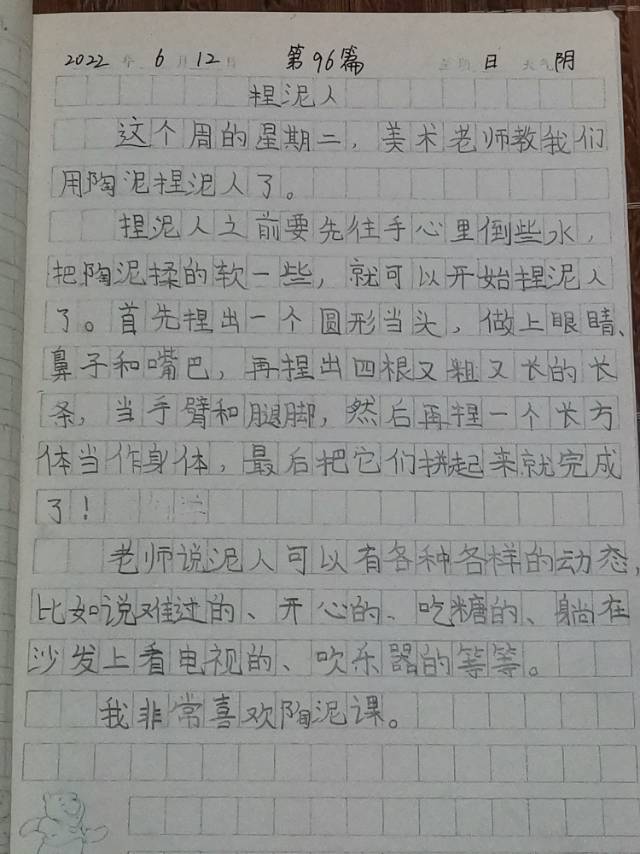 2022年 6月 12日 第96篇 星期日 天气阴
捏泥人
这个周的星期二，美术老师教我们
用陶泥捏泥人了。
捏泥人之前要先往手心里倒些水，
把陶泥揉的软一些，就可以开始捏泥人
了。首先捏出一个圆形当头，做上眼睛、
鼻子和嘴巴，再捏出四根又粗又长的长
条，当手臂和腿脚，然后再捏一个长方
体当作身体，最后把它们拼起来就完成
了！
老师说泥人可以有各种各样的动态，
比如说难过的、开心的、吃糖的、躺在
沙发上看电视的、吹乐器的等等。
我非常喜欢陶泥课。